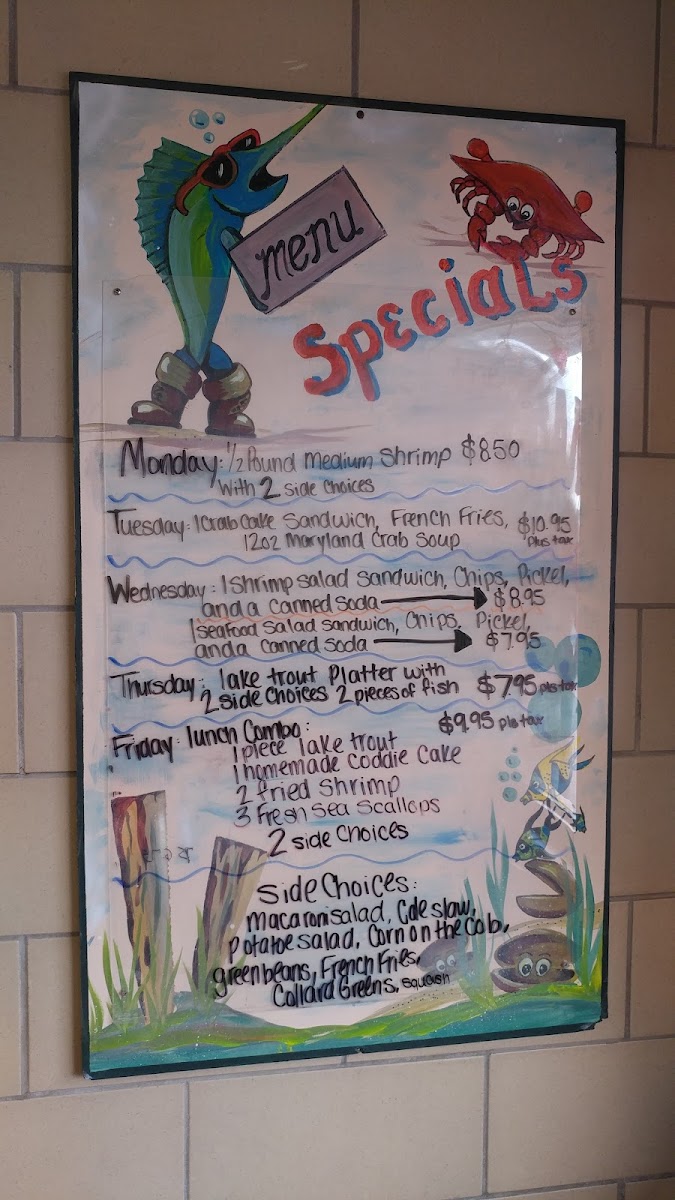 menu
Specials
Monday: 1/2 Pound medium Shrimp $8.50
With 2 side choices
Tuesday: 1 Crab Cake Sandwich, French Fries, $10.95
12oz Maryland Crab Soup plus tax
Wednesday: 1 Shrimp salad Sandwich, Chips, Pickel,
and a canned soda $8.95
1 seafood salad sandwich, Chips, Pickel,
and a canned soda $7.95
Thursday: lake trout Platter with
2 side choices 2 pieces of fish $7.95 pls tax
Friday: lunch Combo: $9.95 pls tax
1 piece lake trout
1 homemade coddie cake
2 fried Shrimp
3 Fresh Sea Scallops
2 side choices
Side Choices:
macaroni salad, Cole slaw,
potatoe salad, Corn on the Cob,
green beans, French Fries,
Collard Greens, Squash